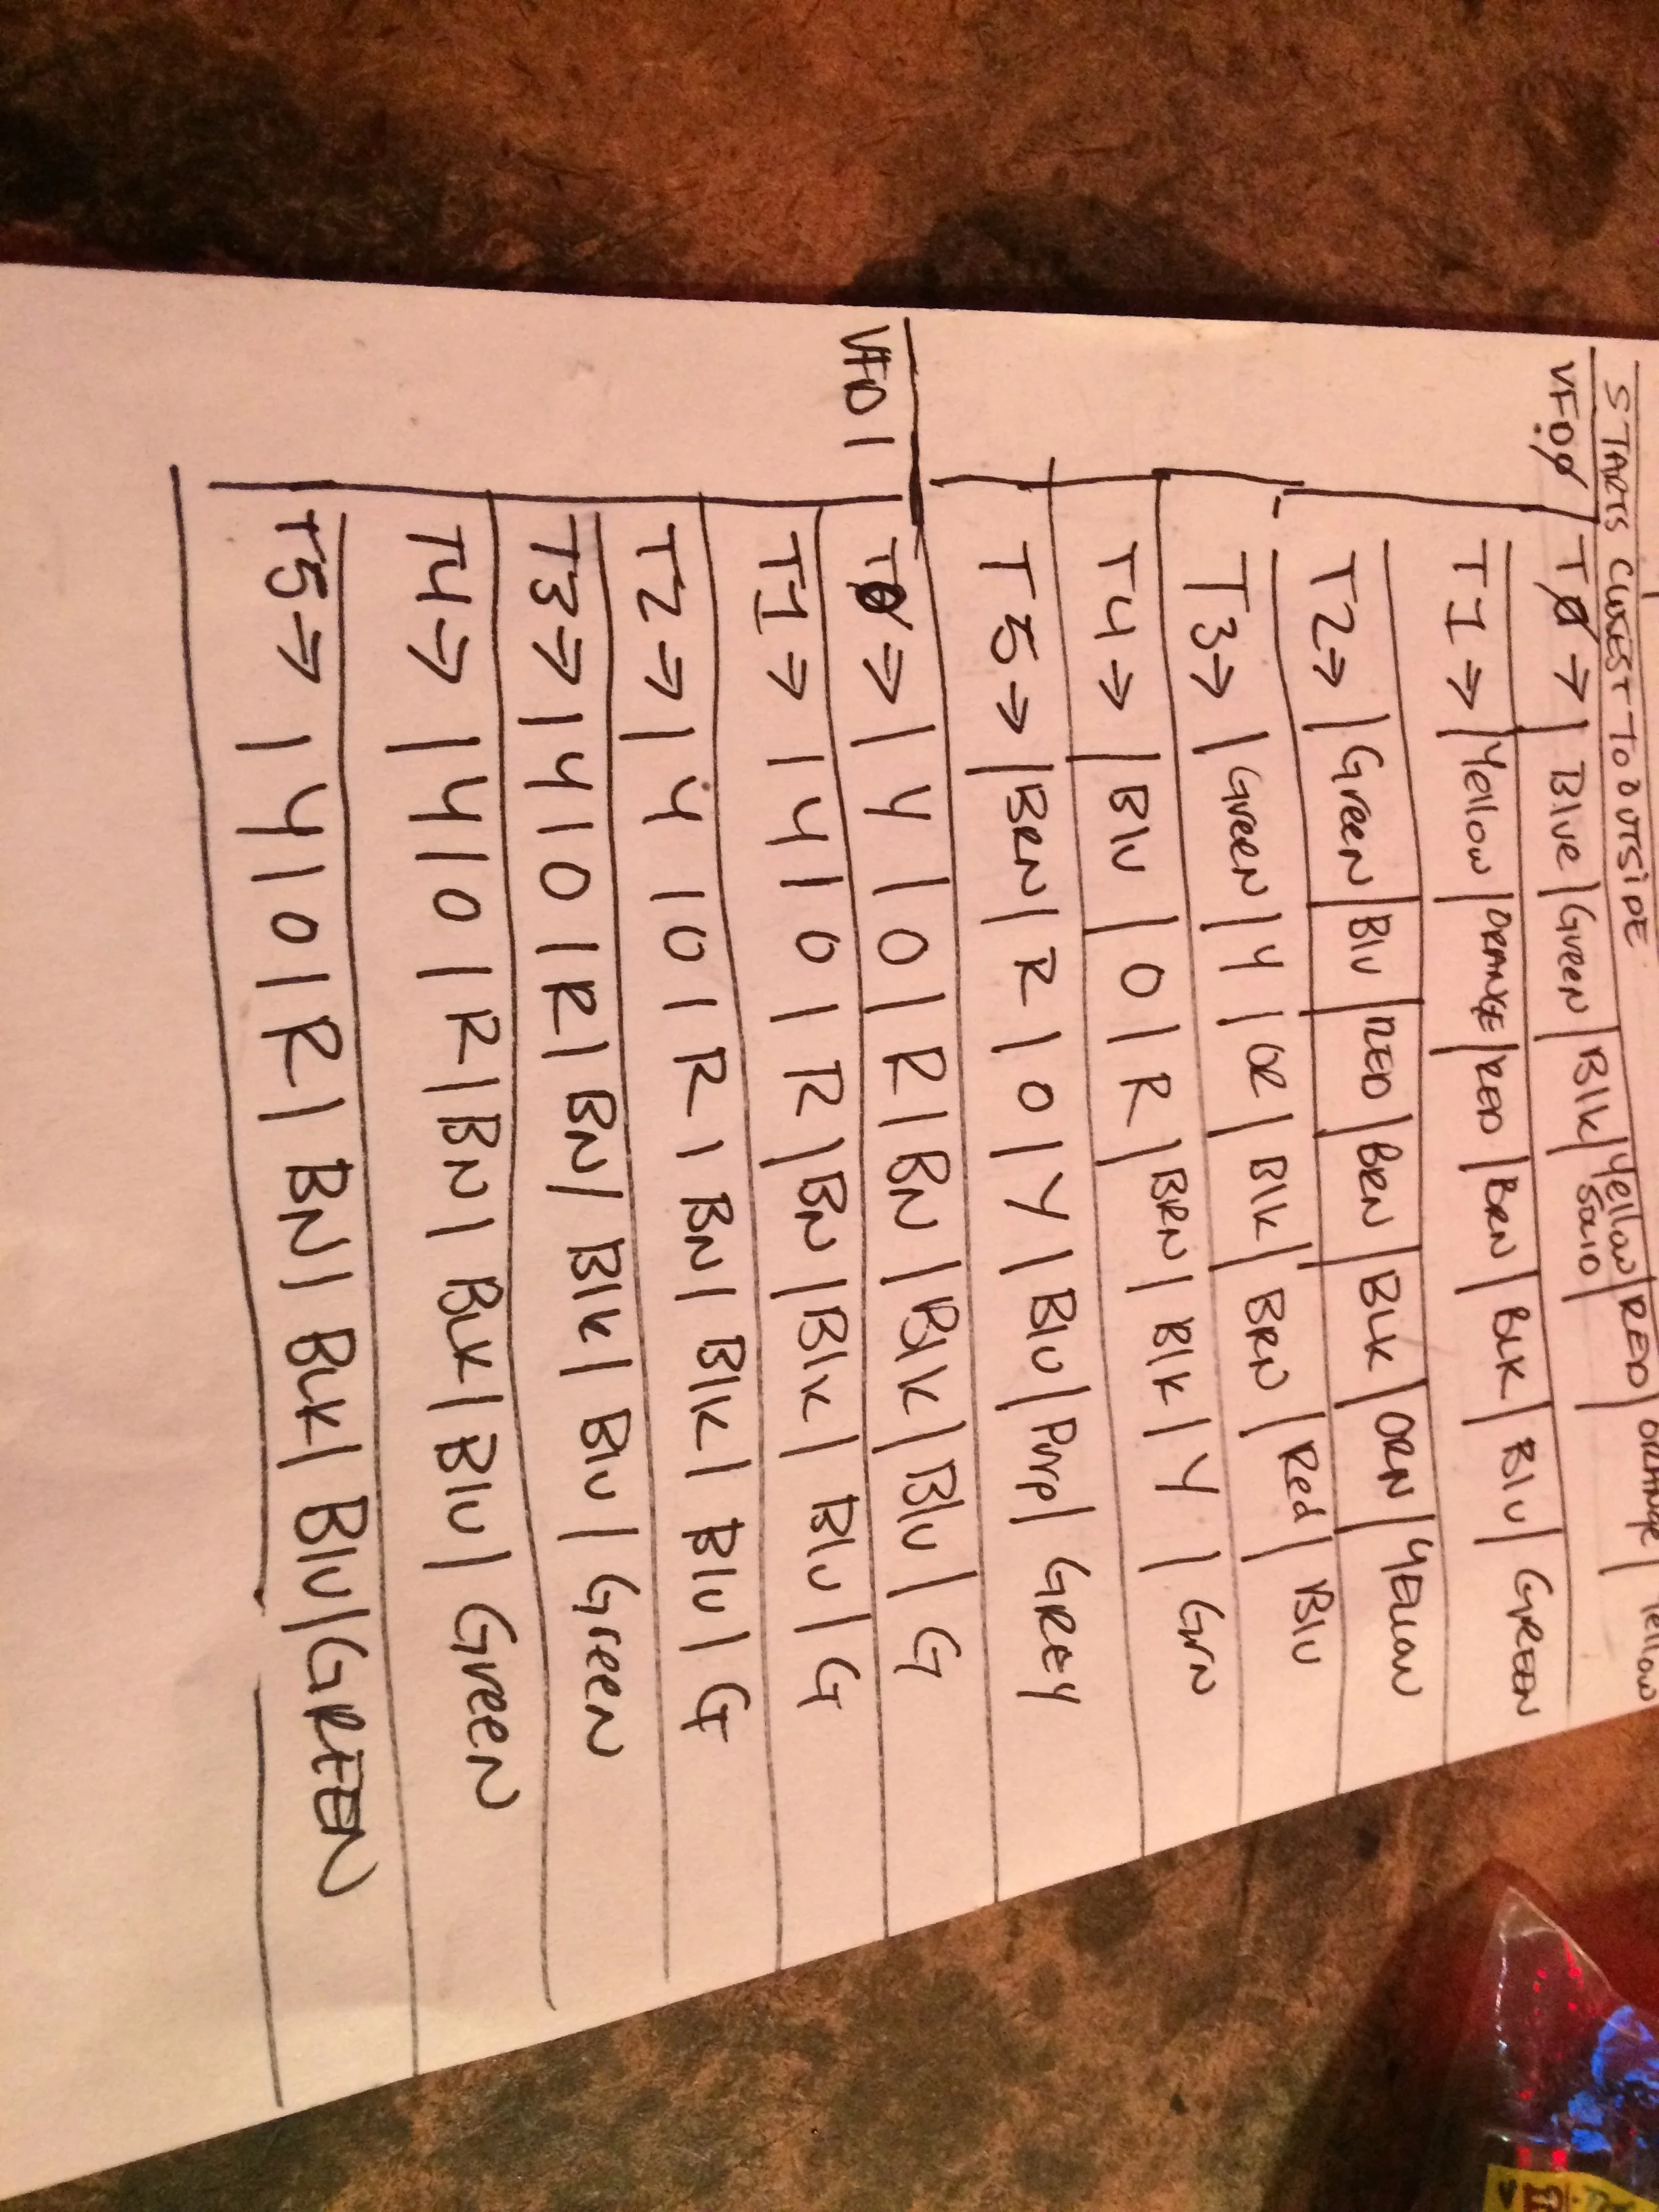 STARTS CLOSEST TO OUTSIDE
VFD0 T0 → | Blue | Green | Blk | Yellow Solid | RED | ORANGE | Yellow
T1 → | Yellow | ORANGE | RED | BRN | BLK | Blu | GREEN
T2 → | Green | Blu | RED | BRN | BLK | ORN | YEllow
T3 → | Green | Y | OR | Blk | BRN | Red | Blu
T4 → | Blu | O | R | BRN | Blk | Y | Grn
T5 → | BRN | R | O | Y | Blu | Purp | GREY
VFD 1 T0 → | Y | O | R | BN | Blk | Blu | G
T1 → | Y | O | R | BN | Blk | Blu | G
T2 → | Y | O | R | BN | Blk | Blu | G
T3 → | Y | O | R | BN / Blk | Blu | Green
T4 → | Y | O | R | BN | BLK | Blu | Green
T5 → | Y | O | R | BN | BLK | Blu | GREEN